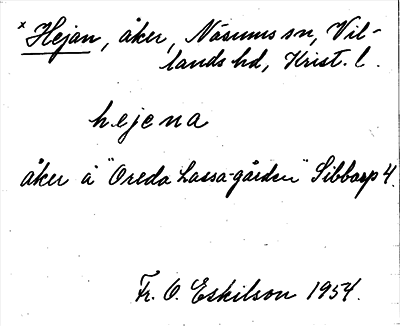 x Hejan, åker, Näsums sn, Vil-
lands hd, Krist. l.
hejena
åker å "Oreda Lassa-gården" Sibbarp 4.
Fr. O. Eskilson 1954.